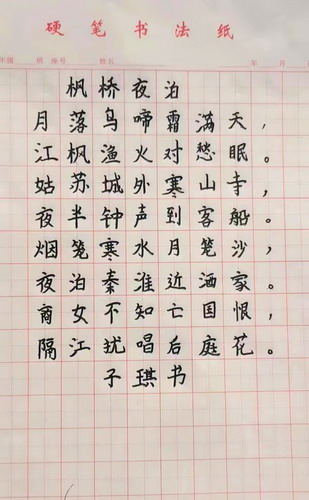 硬笔书法纸
年级 班 座号 姓名 年 月
枫桥夜泊
月落乌啼霜满天，
江枫渔火对愁眠。
姑苏城外寒山寺，
夜半钟声到客船。
烟笼寒水月笼沙，
夜泊秦淮近酒家。
商女不知亡国恨，
隔江犹唱后庭花。
子琪书